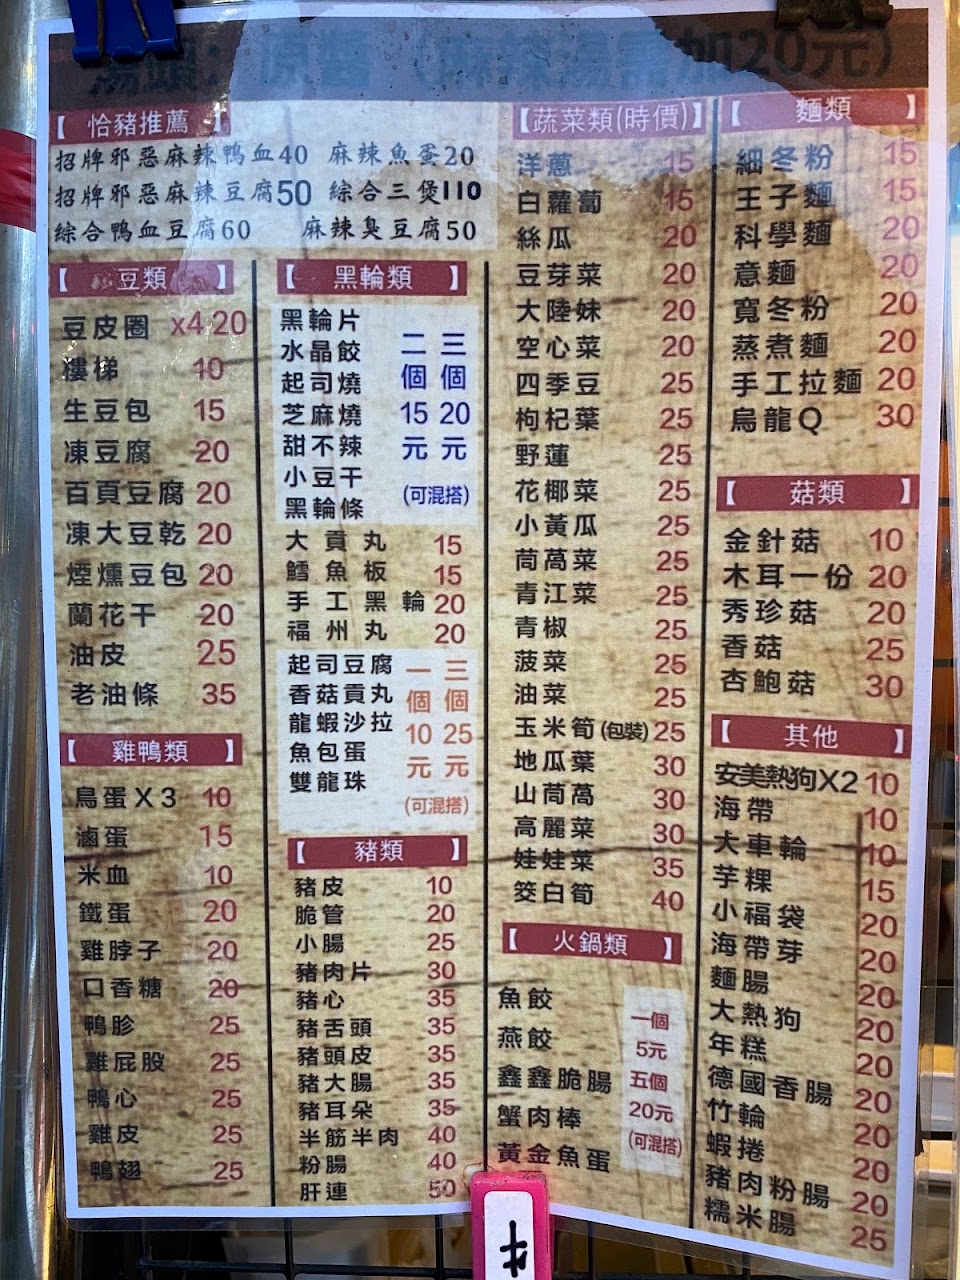 湯頭：原醬（麻辣湯需加20元）
【恰豬推薦】
招牌邪惡麻辣鴨血40 麻辣魚蛋20
招牌邪惡麻辣豆腐50 綜合三煲110
綜合鴨血豆腐60 麻辣臭豆腐50
【豆類】
豆皮圈 x4 20
樓梯 10
生豆包 15
凍豆腐 20
百頁豆腐 20
凍大豆乾 20
煙燻豆包 20
蘭花干 20
油皮 25
老油條 35
【雞鴨類】
鳥蛋X3 10
滷蛋 15
米血 10
鐵蛋 20
雞脖子 20
口香糖 20
鴨胗 25
雞屁股 25
鴨心 25
雞皮 25
鴨翅 25
【黑輪類】
黑輪片
水晶餃
起司燒
芝麻燒
甜不辣
小豆干
黑輪條
二個15元 三個20元
(可混搭)
大貢丸 15
鱈魚板 15
手工黑輪 20
福州丸 20
起司豆腐
香菇貢丸
龍蝦沙拉
魚包蛋
雙龍珠
一個10元 三個25元
(可混搭)
【豬類】
豬皮 10
脆管 20
小腸 25
豬肉片 30
豬心 35
豬舌頭 35
豬頭皮 35
豬大腸 35
豬耳朵 35
半筋半肉 40
粉腸 40
肝連 50
【蔬菜類(時價)】
洋蔥 15
白蘿蔔 15
絲瓜 20
豆芽菜 20
大陸妹 20
空心菜 20
四季豆 25
枸杞葉 25
野蓮 25
花椰菜 25
小黃瓜 25
茼萵菜 25
青江菜 25
青椒 25
菠菜 25
油菜 25
玉米筍(包裝) 25
地瓜葉 30
山茼萵 30
高麗菜 30
娃娃菜 35
筊白筍 40
【火鍋類】
魚餃
燕餃
鑫鑫脆腸
蟹肉棒
黃金魚蛋
一個
5元
五個
20元
(可混搭)
【麵類】
細冬粉 15
王子麵 15
科學麵 20
意麵 20
寬冬粉 20
蒸煮麵 20
手工拉麵 20
烏龍Q 30
【菇類】
金針菇 10
木耳一份 20
秀珍菇 20
香菇 25
杏鮑菇 30
【其他】
安美熱狗X2 10
海帶 10
大車輪 10
芋粿 15
小福袋 20
海帶芽 20
麵腸 20
大熱狗 20
年糕 20
德國香腸 20
竹輪 20
蝦捲 20
豬肉粉腸 20
糯米腸 25